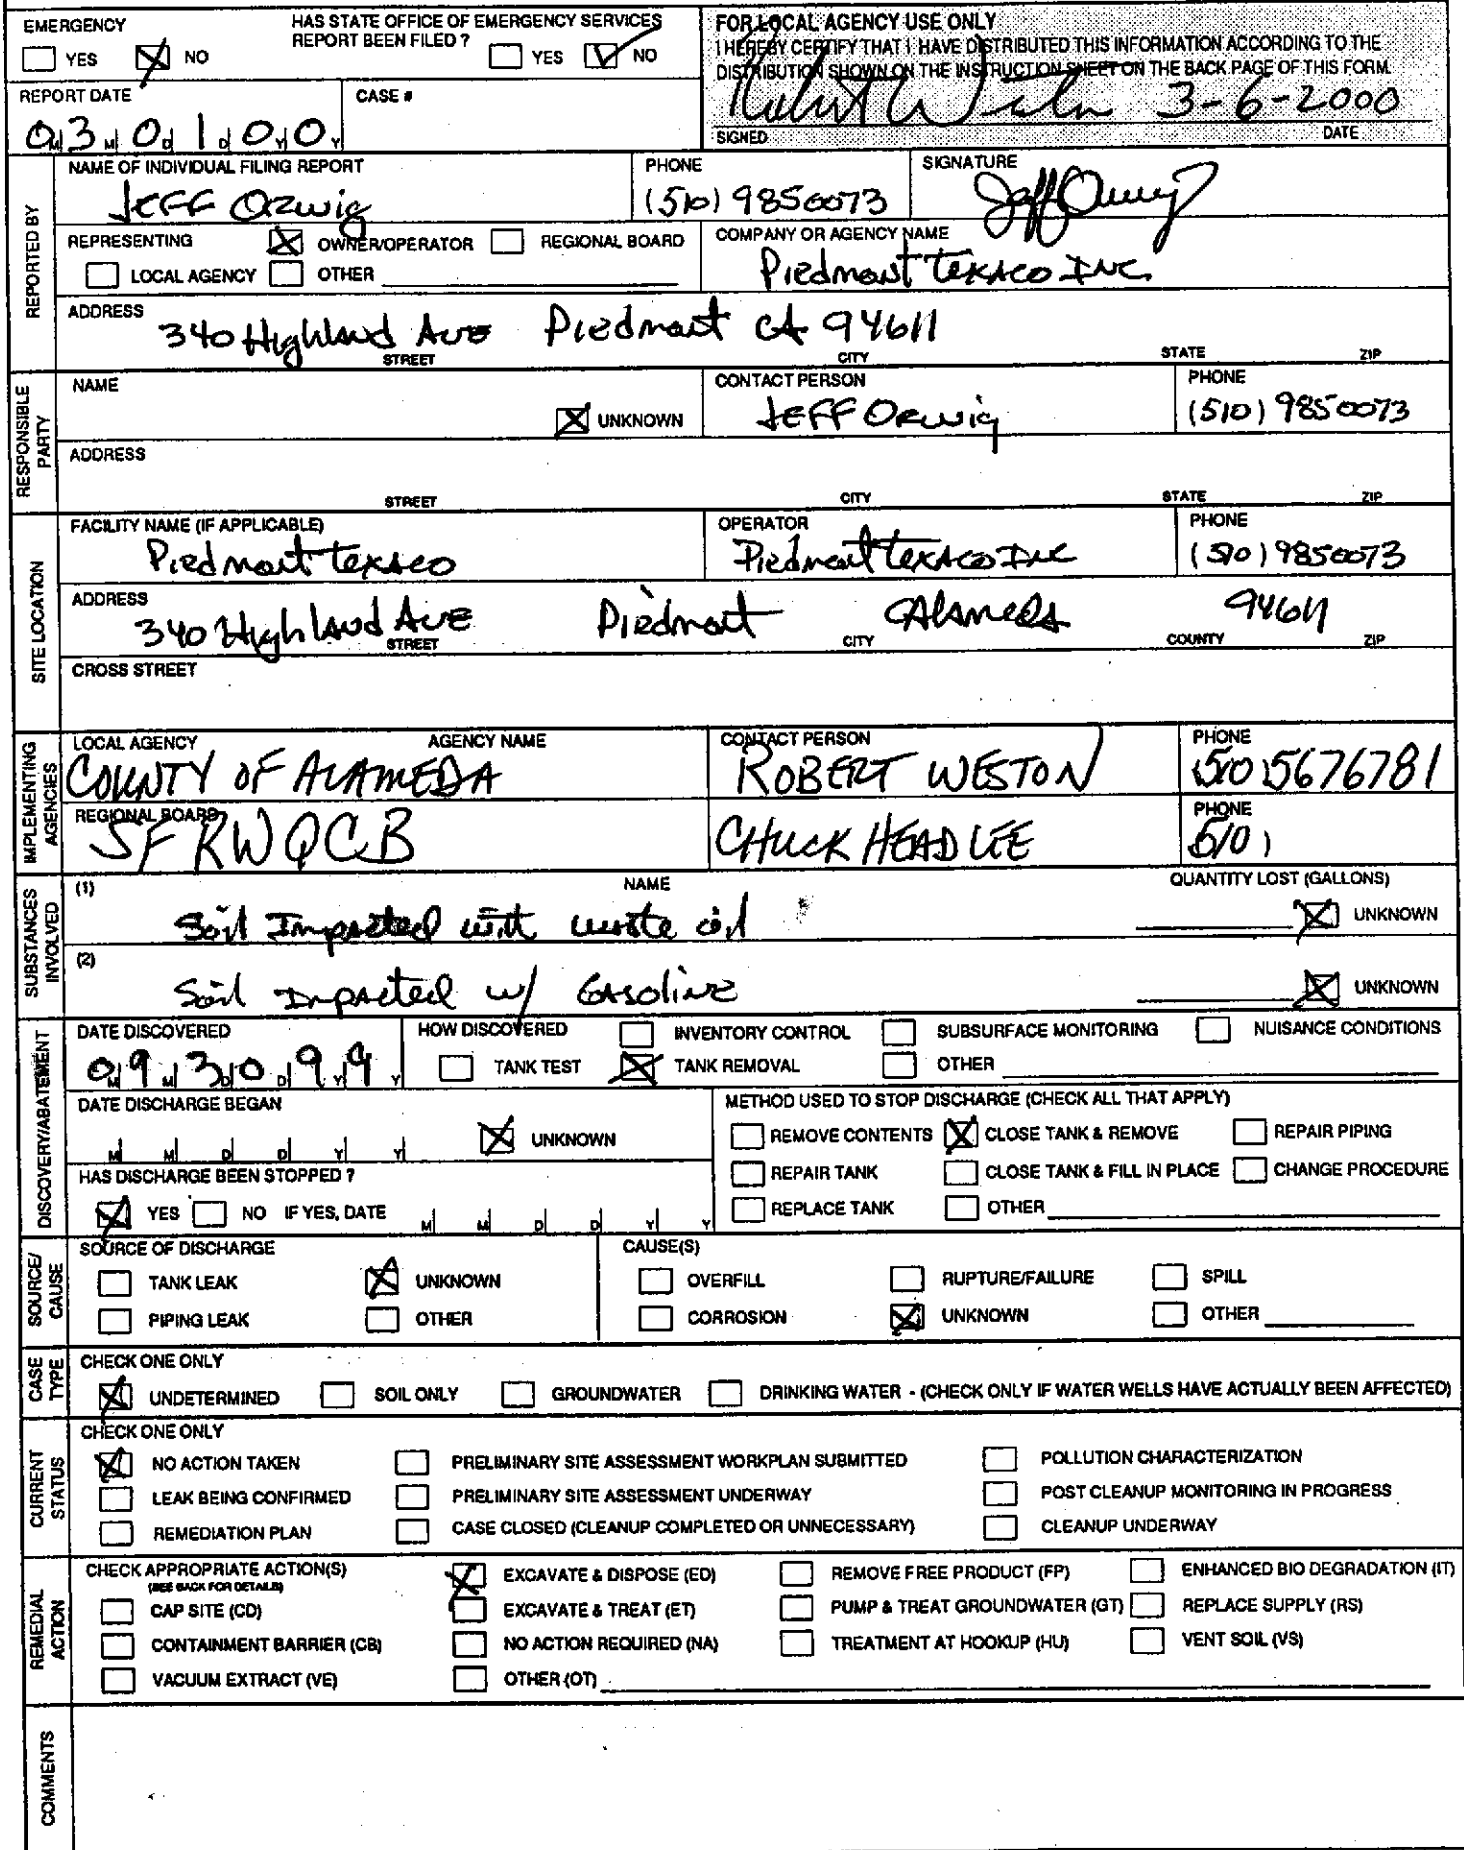 EMERGENCY
YES NO
HAS STATE OFFICE OF EMERGENCY SERVICES
REPORT BEEN FILED ?
YES NO
FOR LOCAL AGENCY USE ONLY
I HEREBY CERTIFY THAT I HAVE DISTRIBUTED THIS INFORMATION ACCORDING TO THE
DISTRIBUTION SHOWN ON THE INSTRUCTION SHEET ON THE BACK PAGE OF THIS FORM.
3-6-2000
SIGNED DATE
REPORT DATE
03 01 00
M M D D Y Y
CASE #
REPORTED BY
NAME OF INDIVIDUAL FILING REPORT
Jeff Orwig
PHONE
(510) 9850073
SIGNATURE
Jeff Orwig
REPRESENTING OWNER/OPERATOR REGIONAL BOARD
LOCAL AGENCY OTHER
COMPANY OR AGENCY NAME
Piedmont Texaco Inc.
ADDRESS
340 Highland Ave Piedmont CA 94611
STREET CITY STATE ZIP
RESPONSIBLE PARTY
NAME
UNKNOWN
CONTACT PERSON
Jeff Orwig
PHONE
(510) 9850073
ADDRESS
STREET CITY STATE ZIP
SITE LOCATION
FACILITY NAME (IF APPLICABLE)
Piedmont Texaco
OPERATOR
Piedmont Texaco Inc
PHONE
(510) 9850073
ADDRESS
340 Highland Ave Piedmont Alameda 94611
STREET CITY COUNTY ZIP
CROSS STREET
IMPLEMENTING AGENCIES
LOCAL AGENCY AGENCY NAME
COUNTY OF ALAMEDA
CONTACT PERSON
ROBERT WESTON
PHONE
(510) 5676781
REGIONAL BOARD
SFRWQCB
CHUCK HEADLEE
PHONE
(510)
SUBSTANCES INVOLVED
(1) NAME QUANTITY LOST (GALLONS)
Soil Impacted with waste oil UNKNOWN
(2)
Soil Impacted w/ Gasoline UNKNOWN
DISCOVERY/ABATEMENT
DATE DISCOVERED
09 30 99
M M D D Y Y
HOW DISCOVERED INVENTORY CONTROL SUBSURFACE MONITORING NUISANCE CONDITIONS
TANK TEST TANK REMOVAL OTHER
DATE DISCHARGE BEGAN
M M D D Y Y UNKNOWN
METHOD USED TO STOP DISCHARGE (CHECK ALL THAT APPLY)
REMOVE CONTENTS CLOSE TANK & REMOVE REPAIR PIPING
REPAIR TANK CLOSE TANK & FILL IN PLACE CHANGE PROCEDURE
REPLACE TANK OTHER
HAS DISCHARGE BEEN STOPPED ?
YES NO IF YES, DATE M M D D Y Y
SOURCE/ CAUSE
SOURCE OF DISCHARGE
TANK LEAK UNKNOWN
PIPING LEAK OTHER
CAUSE(S)
OVERFILL RUPTURE/FAILURE SPILL
CORROSION UNKNOWN OTHER
CASE TYPE
CHECK ONE ONLY
UNDETERMINED SOIL ONLY GROUNDWATER DRINKING WATER - (CHECK ONLY IF WATER WELLS HAVE ACTUALLY BEEN AFFECTED)
CURRENT STATUS
CHECK ONE ONLY
NO ACTION TAKEN PRELIMINARY SITE ASSESSMENT WORKPLAN SUBMITTED POLLUTION CHARACTERIZATION
LEAK BEING CONFIRMED PRELIMINARY SITE ASSESSMENT UNDERWAY POST CLEANUP MONITORING IN PROGRESS
REMEDIATION PLAN CASE CLOSED (CLEANUP COMPLETED OR UNNECESSARY) CLEANUP UNDERWAY
REMEDIAL ACTION
CHECK APPROPRIATE ACTION(S)
(SEE BACK FOR DETAILS)
EXCAVATE & DISPOSE (ED) REMOVE FREE PRODUCT (FP) ENHANCED BIO DEGRADATION (IT)
CAP SITE (CD) EXCAVATE & TREAT (ET) PUMP & TREAT GROUNDWATER (GT) REPLACE SUPPLY (RS)
CONTAINMENT BARRIER (CB) NO ACTION REQUIRED (NA) TREATMENT AT HOOKUP (HU) VENT SOIL (VS)
VACUUM EXTRACT (VE) OTHER (OT)
COMMENTS